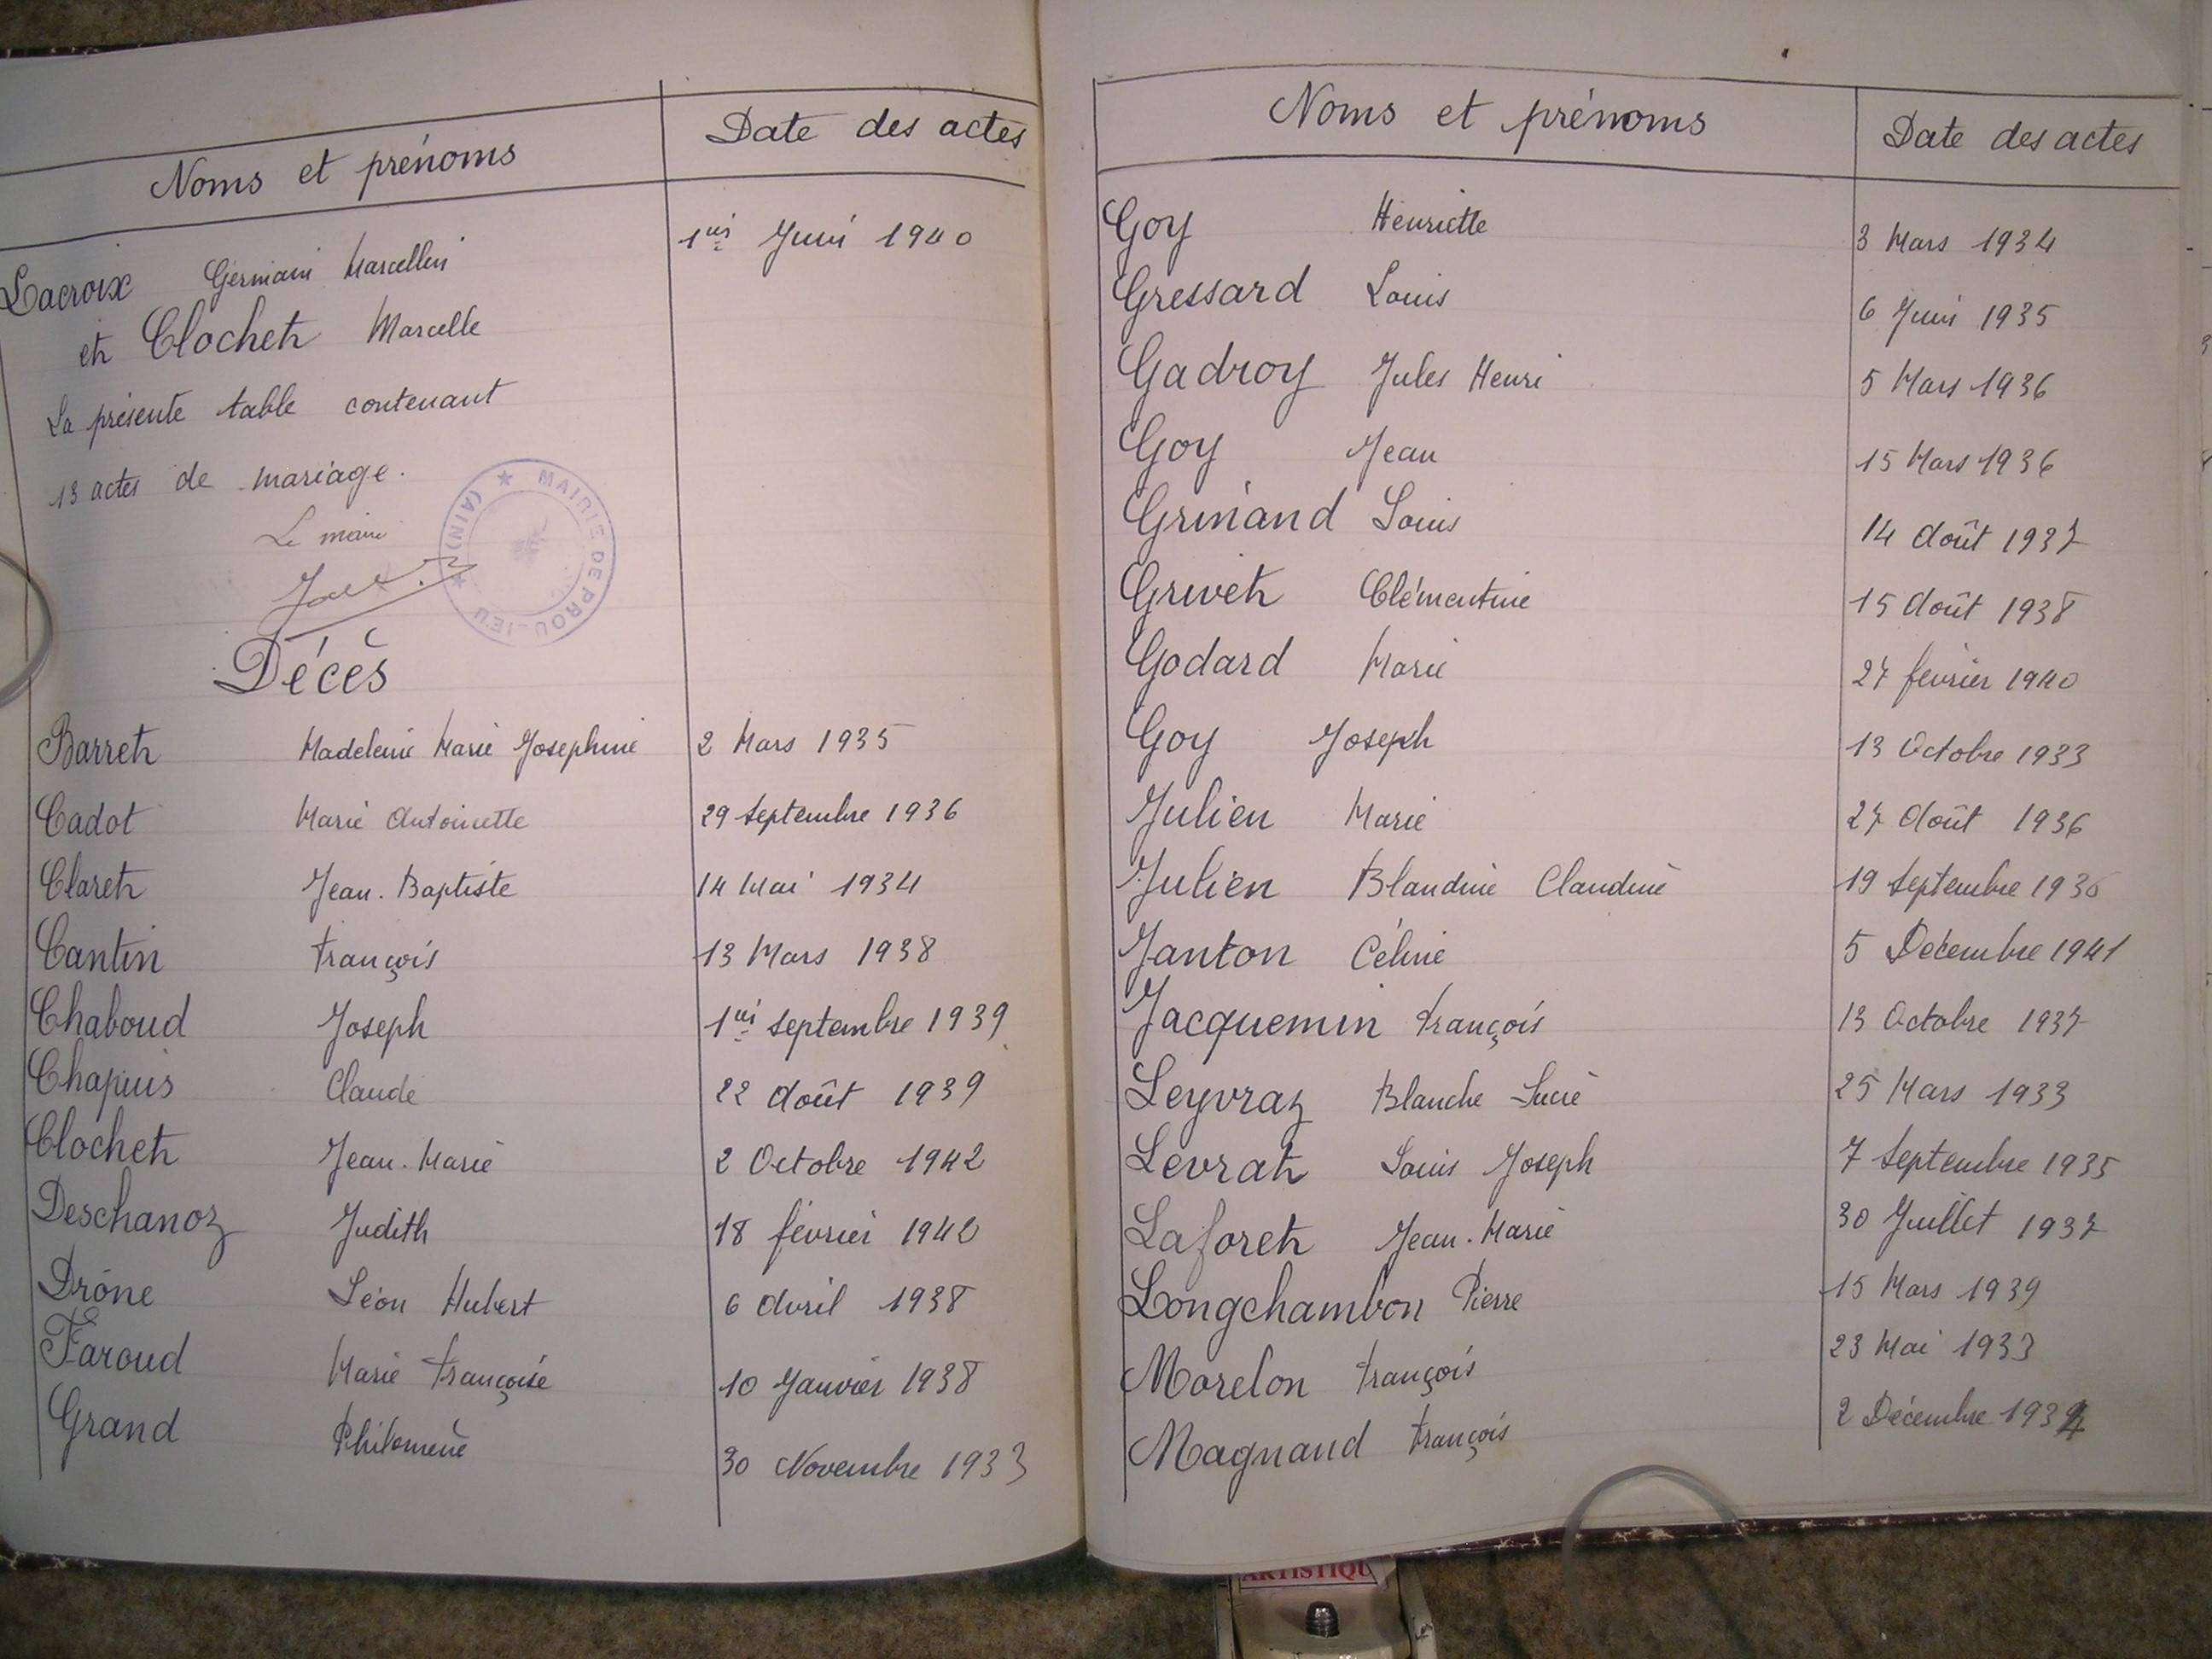 Noms et prénoms Date des actes
Lacroix Germain Marcellin 1er Juin 1940
et Clochet Marcelle
La présente table contenant
13 actes de mariage.
Le maire
★ MAIRIE DE PROULIEU ★ (AIN)
Décès
Barret Madeleine Marie Josephine 2 Mars 1935
Cadot Marie Antoinette 29 Septembre 1936
Claret Jean-Baptiste 14 Mai 1934
Cantin François 13 Mars 1938
Chaboud Joseph 1er Septembre 1939
Chapuis Claude 22 Août 1939
Clochet Jean-Marie 2 Octobre 1942
Deschanoz Judith 18 février 1942
Drône Léon Hubert 6 Avril 1938
Faroud Marie Françoise 10 Janvier 1938
Grand Philomène 30 Novembre 1933
Noms et prénoms Date des actes
Goy Henriette 3 Mars 1934
Gressard Louis 6 Juin 1935
Gadroy Jules Henri 5 Mars 1936
Goy Jean 15 Mars 1936
Grinand Louis 14 Août 1937
Grivet Clémentine 15 Août 1938
Godard Marie 27 février 1940
Goy Joseph 13 Octobre 1933
Julien Marie 27 Août 1936
Julien Blandine Claudine 19 Septembre 1936
Janton Céline 5 Décembre 1941
Jacquemin François 13 Octobre 1937
Leyvraz Blanche Lucie 25 Mars 1933
Levrat Louis Joseph 7 Septembre 1935
Laforet Jean-Marie 30 Juillet 1937
Longchambon Pierre 15 Mars 1939
Morelon François 23 Mai 1933
Magnand François 2 Décembre 1934
ARTISTIQU